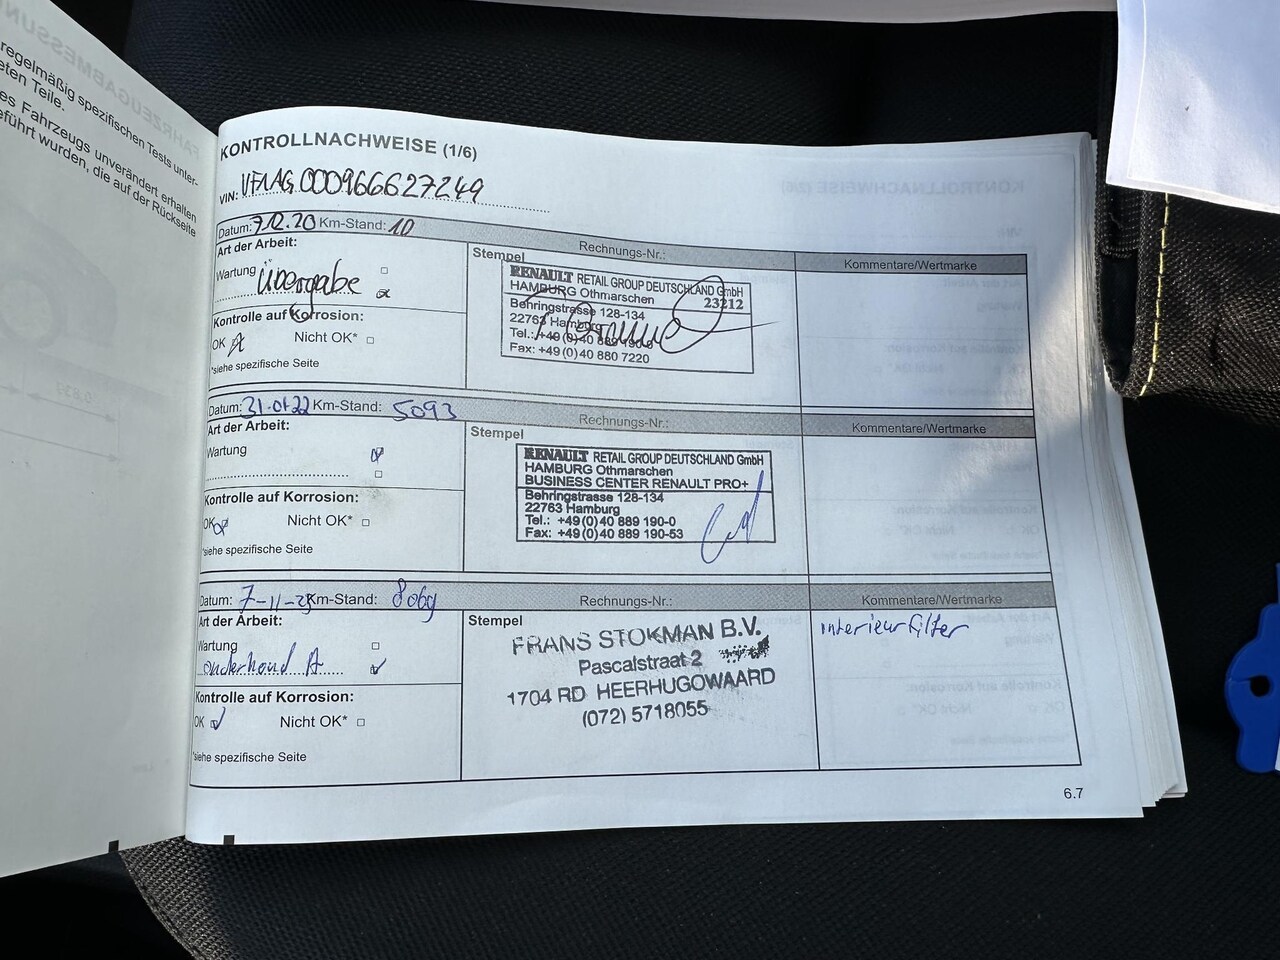 regelmäßig spezifischen Tests unter-
eten Teile.
es Fahrzeugs unverändert erhalten
eführt wurden, die auf der Rückseite
KONTROLLNACHWEISE (1/6)
VIN: VF1AG000966627249
Datum: 7.12.20 Km-Stand: 10
Rechnungs-Nr.:
Kommentare/Wertmarke
Art der Arbeit:
Wartung
Übergabe
Kontrolle auf Korrosion:
OK Nicht OK*
*siehe spezifische Seite
Stempel
RENAULT RETAIL GROUP DEUTSCHLAND GmbH
HAMBURG Othmarschen 23212
Behringstrasse 128-134
22763 Hamburg
Tel.: +49(0)40 889 190-0
Fax: +49(0)40 880 7220
Datum: 31.01.22 Km-Stand: 5093
Rechnungs-Nr.:
Kommentare/Wertmarke
Art der Arbeit:
Wartung
Kontrolle auf Korrosion:
OK Nicht OK*
*siehe spezifische Seite
Stempel
RENAULT RETAIL GROUP DEUTSCHLAND GmbH
HAMBURG Othmarschen
BUSINESS CENTER RENAULT PRO+
Behringstrasse 128-134
22763 Hamburg
Tel.: +49(0)40 889 190-0
Fax: +49(0)40 889 190-53
Datum: 7-11-23 Km-Stand: 8069
Rechnungs-Nr.:
Kommentare/Wertmarke
Art der Arbeit:
Wartung
onderhoud A
Kontrolle auf Korrosion:
OK Nicht OK*
*siehe spezifische Seite
Stempel
FRANS STOKMAN B.V.
Pascalstraat 2
1704 RD HEERHUGOWAARD
(072) 5718055
interieurfilter
6.7